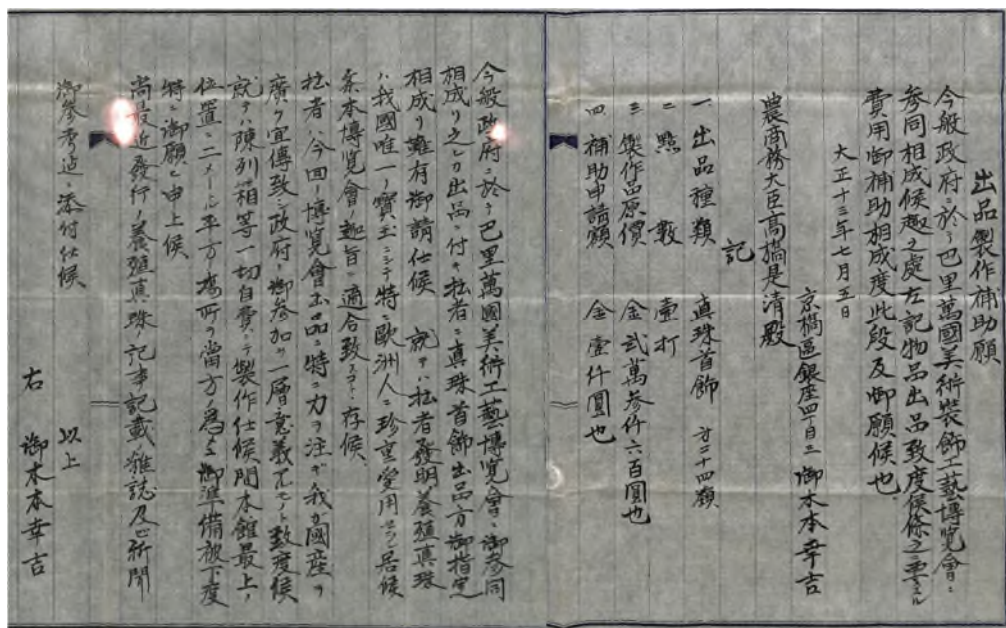 出品製作補助願
今般政府ニ於テ巴里萬國美術装飾工藝博覧會ニ
参同相成候趣之處左記物品出品致度候條之ニ要スル
費用御補助相成度此段及御願候也
大正十三年七月五日
京橋區銀座四丁目三 御木本幸吉
農商務大臣高橋是清殿
記
一 出品種類 真珠首飾 方二十四顆
二 點數 壹打
三 製作品原價 金弐萬参仟六百圓也
四 補助申請額 金壹仟圓也
今般政府ニ於テ巴里萬國美術工藝博覧會ニ御参同
相成リ之レカ出品ニ付キ拙者ニ真珠首飾出品方御指定
相成リ難有御請仕候 就テハ拙者発明養殖真珠
ハ我國唯一ノ寶玉ニシテ特ニ歐洲人ニ珍重愛用セラレ居候
条本博覧會ノ趣旨ニ適合致スコト存候
拙者ハ今回ノ博覧會出品ニ特ニ力ヲ注ギ我カ國産ヲ
廣ク宣傳致シ政府ノ御参加ヲ一層意義アルモノト致度候
就テハ陳列箱等一切自費ニテ製作仕候間本館最上ノ
位置ニ二メートル平方場所ヲ當方ノ為メ御準備被下度
特ニ御願ヒ申上候
尚最近發行ノ養殖真珠ノ記事記載雑誌及ビ新聞
御参考迄ニ添付仕候
以上
右 御木本幸吉